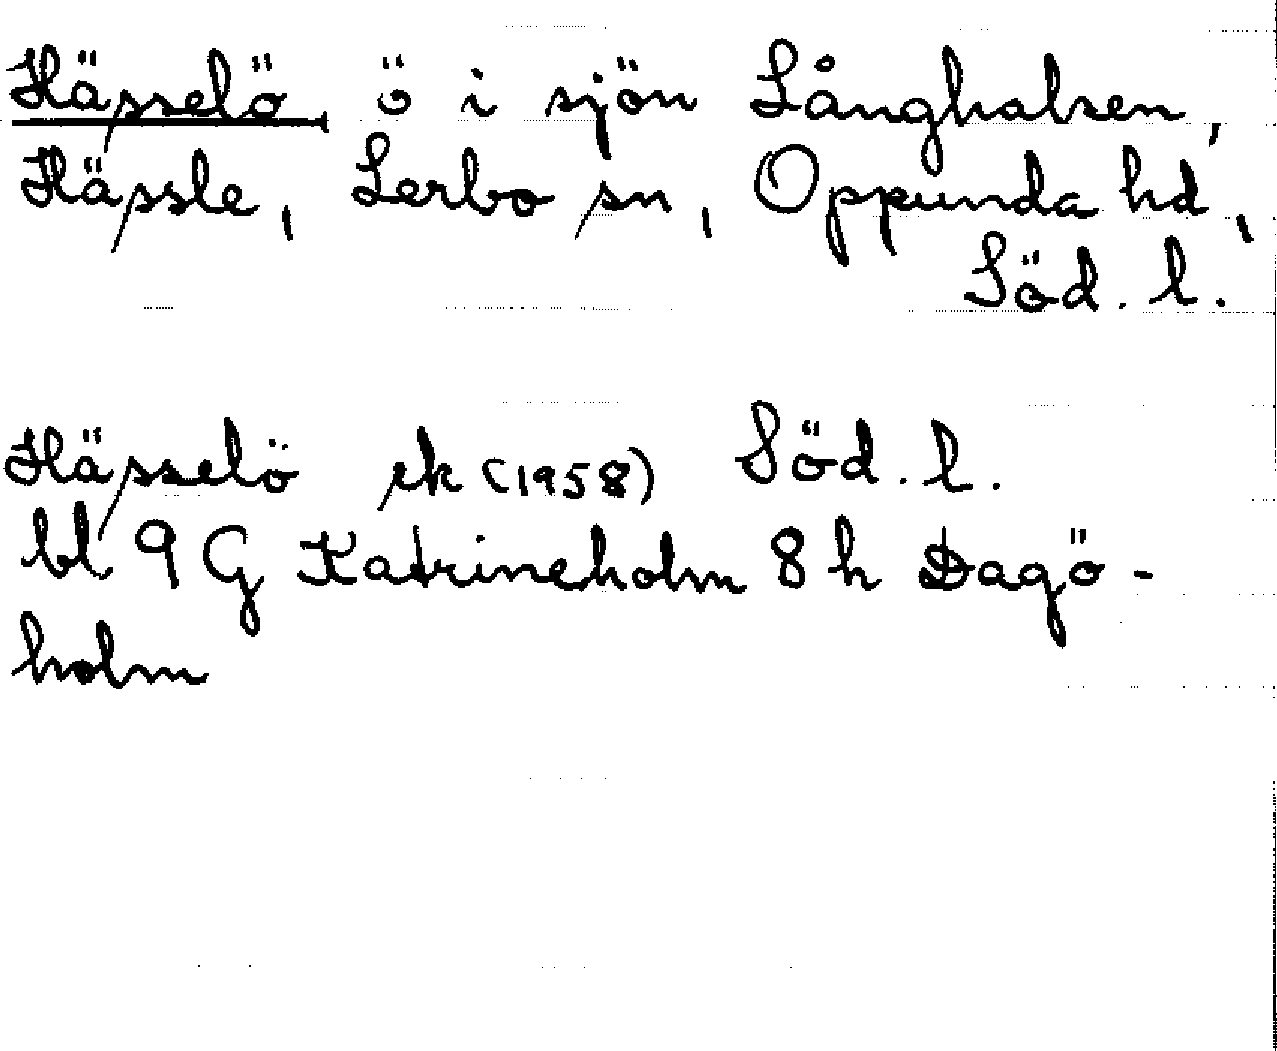 Hässelö, ö i sjön Långhalsen,
Hässle, Lerbo sn, Oppunda hd,
Söd. l.
Hässelö ek (1958) Söd. l.
bl 9 G Katrineholm 8 h Dagö-
holm